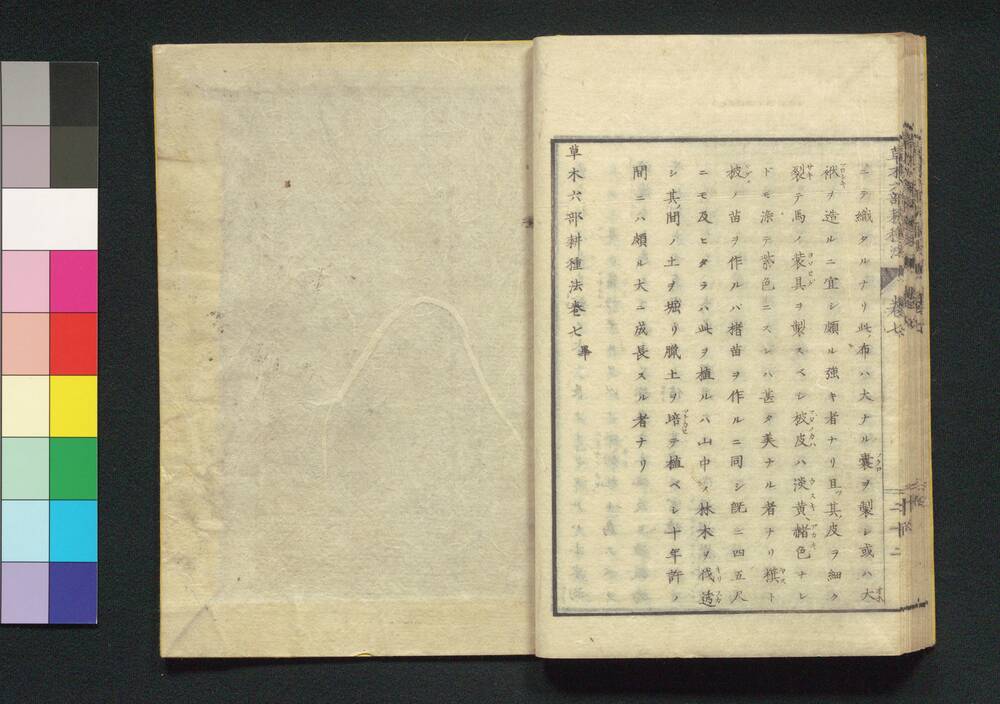 ニテ織タルナリ此布ハ大ナル嚢ヲ製シ或ハ大
袱ヲ造ルニ宜シ頗ル強キ者ナリ且ツ其皮ヲ細ク
裂テ馬ノ装具ヲ製スベシ椴皮ハ淡黄赭色ナレ
ドモ染テ紫色ニスレハ甚タ美ナル者ナリ
ノ苗ヲ作ルハ楮苗ヲ作ルニ同シ既ニ四五尺
ニモ及ヒタラハ此ヲ植ルハ山中ノ林木ヲ伐透
シ其間ノ土ヲ堀リ臘土ヲ培テ植ベシ十年許ノ
間ニハ頗ル大ニ成長スル者ナリ
草木六部耕種法巻七 畢
草木六部耕種法
巻七
二十二